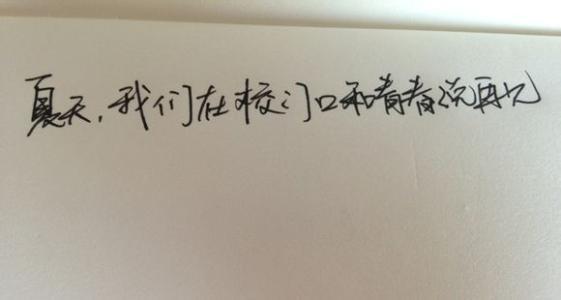 夏天,我们在校门口和青春说再见